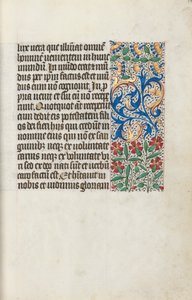 lux vera que illuminat omne
hominem venientem in hunc
mundum. In mundo erat mun
dus per ipsum factus est et mun
dus eum non cognovit. In pro
pria venit et sui eum non rece
perunt. Quotquot autem receper
unt eum dedit eis potestatem filios
dei fieri hijs qui credunt in
nomine eius qui non ex san
guinibus neqz ex voluntate
carnis neqz ex voluntate viri
sed ex deo nati sunt et verbum
caro factum est. Et habitavit in
nobis et vidimus gloriam